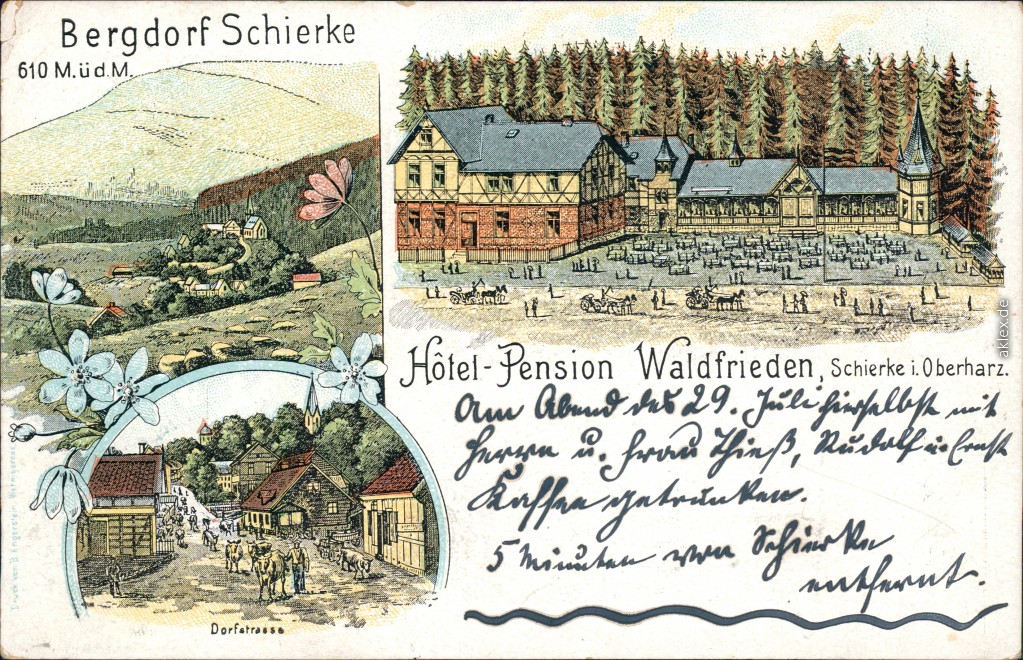 Bergdorf Schierke
610 M.ü.d.M.
Hôtel-Pension Waldfrieden, Schierke i. Oberharz.
Am Abend des 29. Juli hierselbst mit
Herrn u. Frau Thieß, Rudolf u. Ernst
Kaffee getrunken.
5 Minuten von Schierke
entfernt.
Dorfstrasse
aklex.de